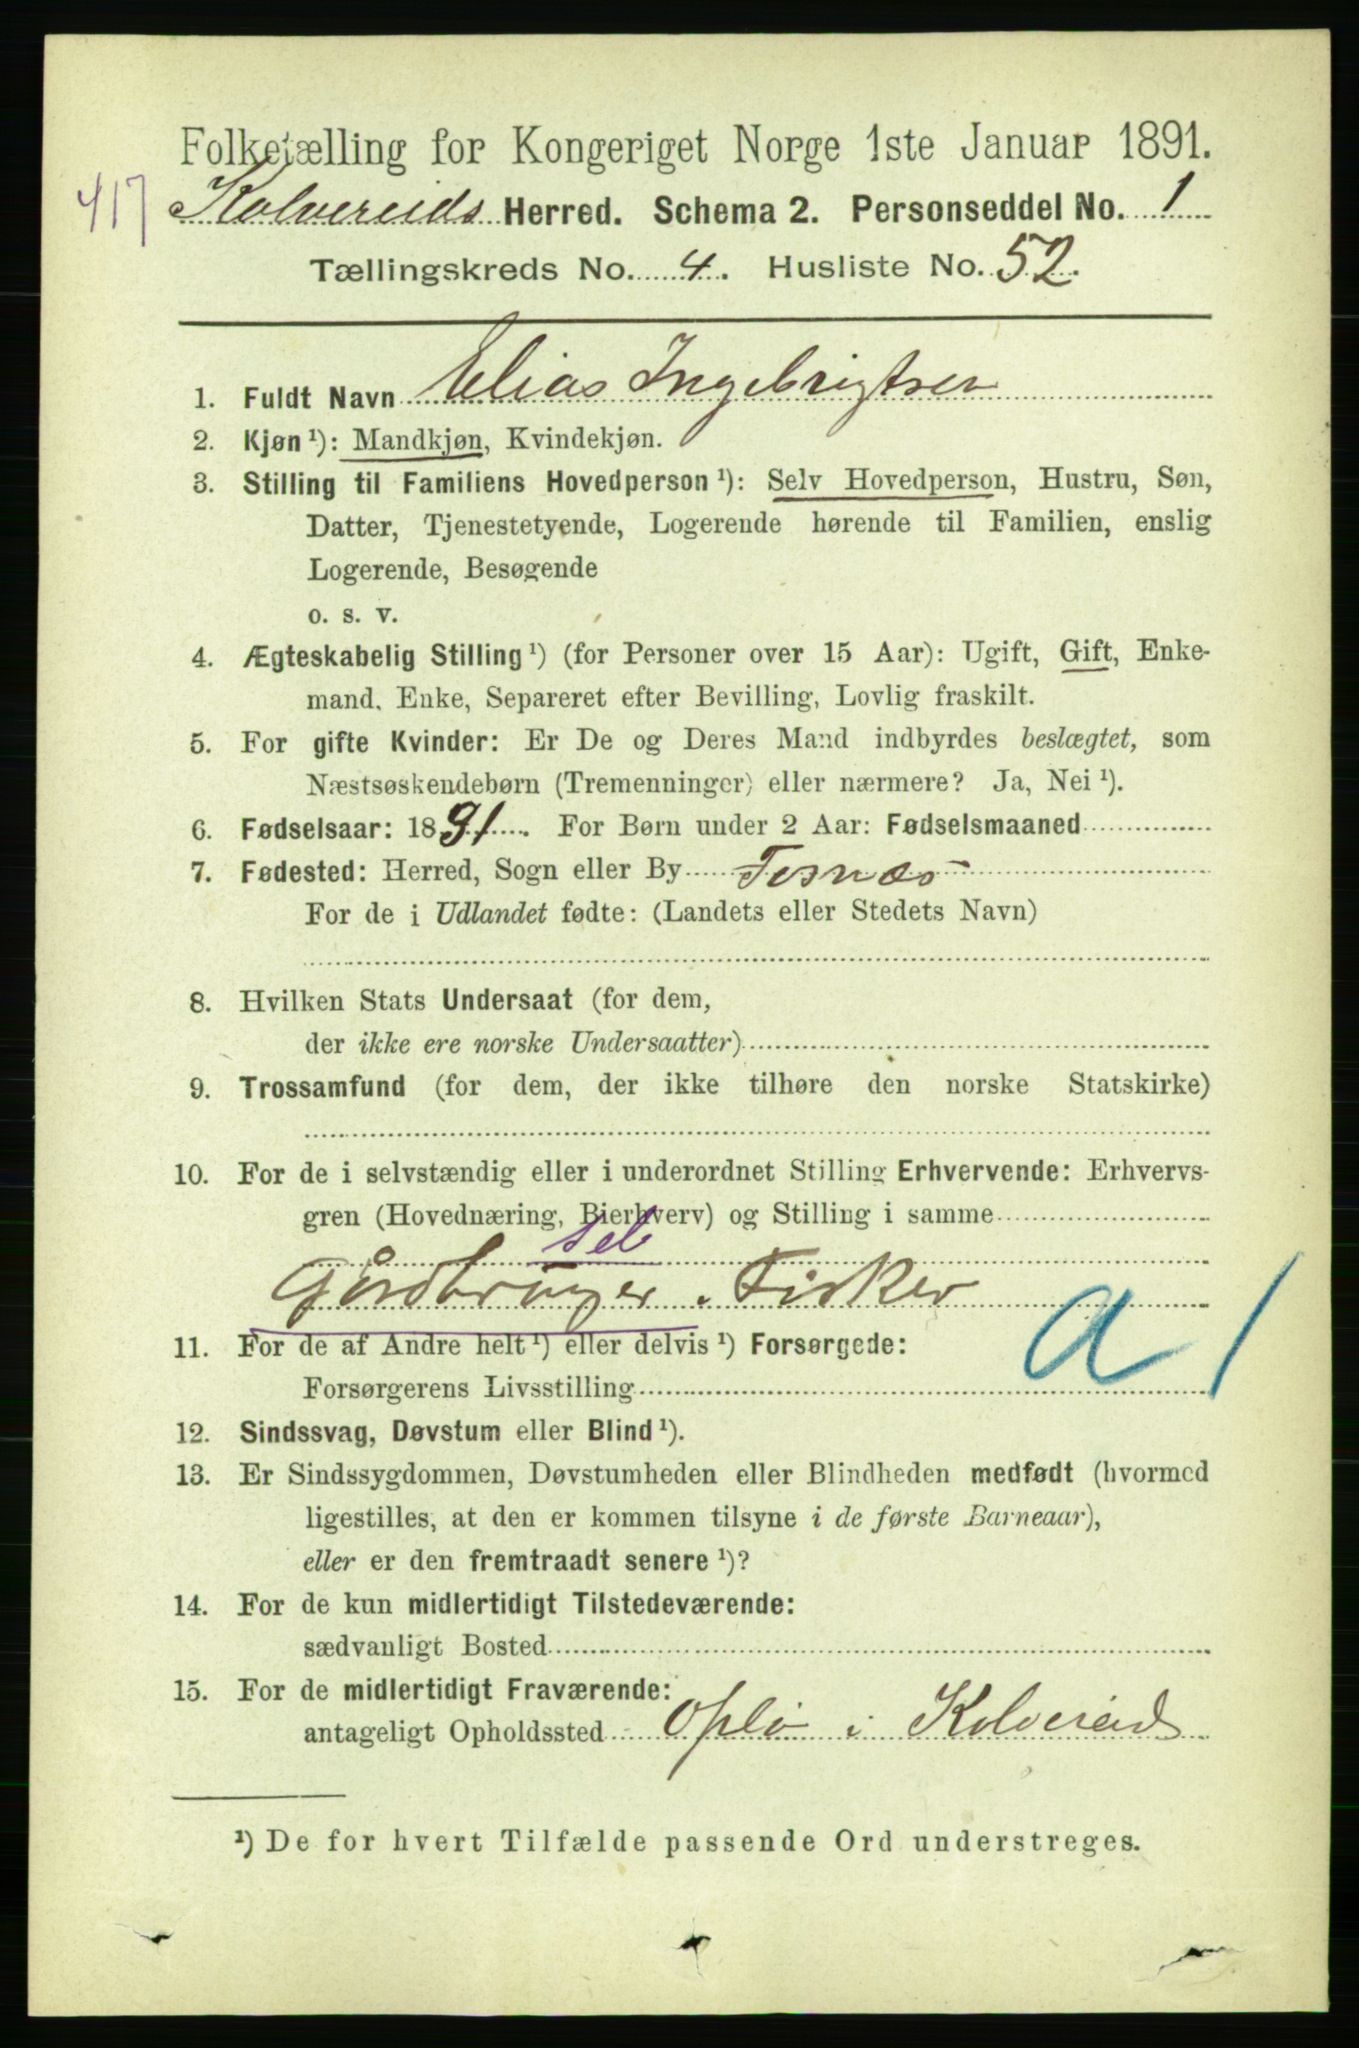 Folketælling for Kongeriget Norge 1ste Januar 1891.
417 Kolvereids Herred. Schema 2. Personseddel No. 1
Tællingskreds No. 4. Husliste No. 52.
1. Fuldt Navn Elias Ingebrigtsen
2. Kjøn ¹): Mandkjøn, Kvindekjøn.
3. Stilling til Familiens Hovedperson ¹): Selv Hovedperson, Hustru, Søn,
Datter, Tjenestetyende, Logerende hørende til Familien, enslig
Logerende, Besøgende
o. s. v.
4. Ægteskabelig Stilling ¹) (for Personer over 15 Aar): Ugift, Gift, Enke-
mand, Enke, Separeret efter Bevilling, Lovlig fraskilt.
5. For gifte Kvinder: Er De og Deres Mand indbyrdes beslægtet, som
Næstsøskendebørn (Tremenninger) eller nærmere? Ja, Nei ¹).
6. Fødselsaar: 18 . For Børn under 2 Aar: Fødselsmaaned
7. Fødested: Herred, Sogn eller By
For de i Udlandet fødte: (Landets eller Stedets Navn)
8. Hvilken Stats Undersaat (for dem,
der ikke ere norske Undersaatter)
9. Trossamfund (for dem, der ikke tilhøre den norske Statskirke)
10. For de i selvstændig eller i underordnet Stilling Erhvervende: Erhvervs-
gren (Hovednæring, Bierhverv) og Stilling i samme
sel
Gårdbruger. Fisker
a 1
11. For de af Andre helt ¹) eller delvis ¹) Forsørgede:
Forsørgerens Livsstilling
12. Sindssvag, Døvstum eller Blind ¹).
13. Er Sindssygdommen, Døvstumheden eller Blindheden medfødt (hvormed
ligestilles, at den er kommen tilsyne i de første Barneaar),
eller er den fremtraadt senere ¹)?
14. For de kun midlertidigt Tilstedeværende:
sædvanligt Bosted
15. For de midlertidigt Fraværende:
antageligt Opholdssted Oplø i Kolvereid
¹) De for hvert Tilfælde passende Ord understreges.